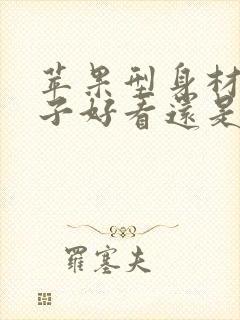 苹果型身材
子好看還是
羅塞夫